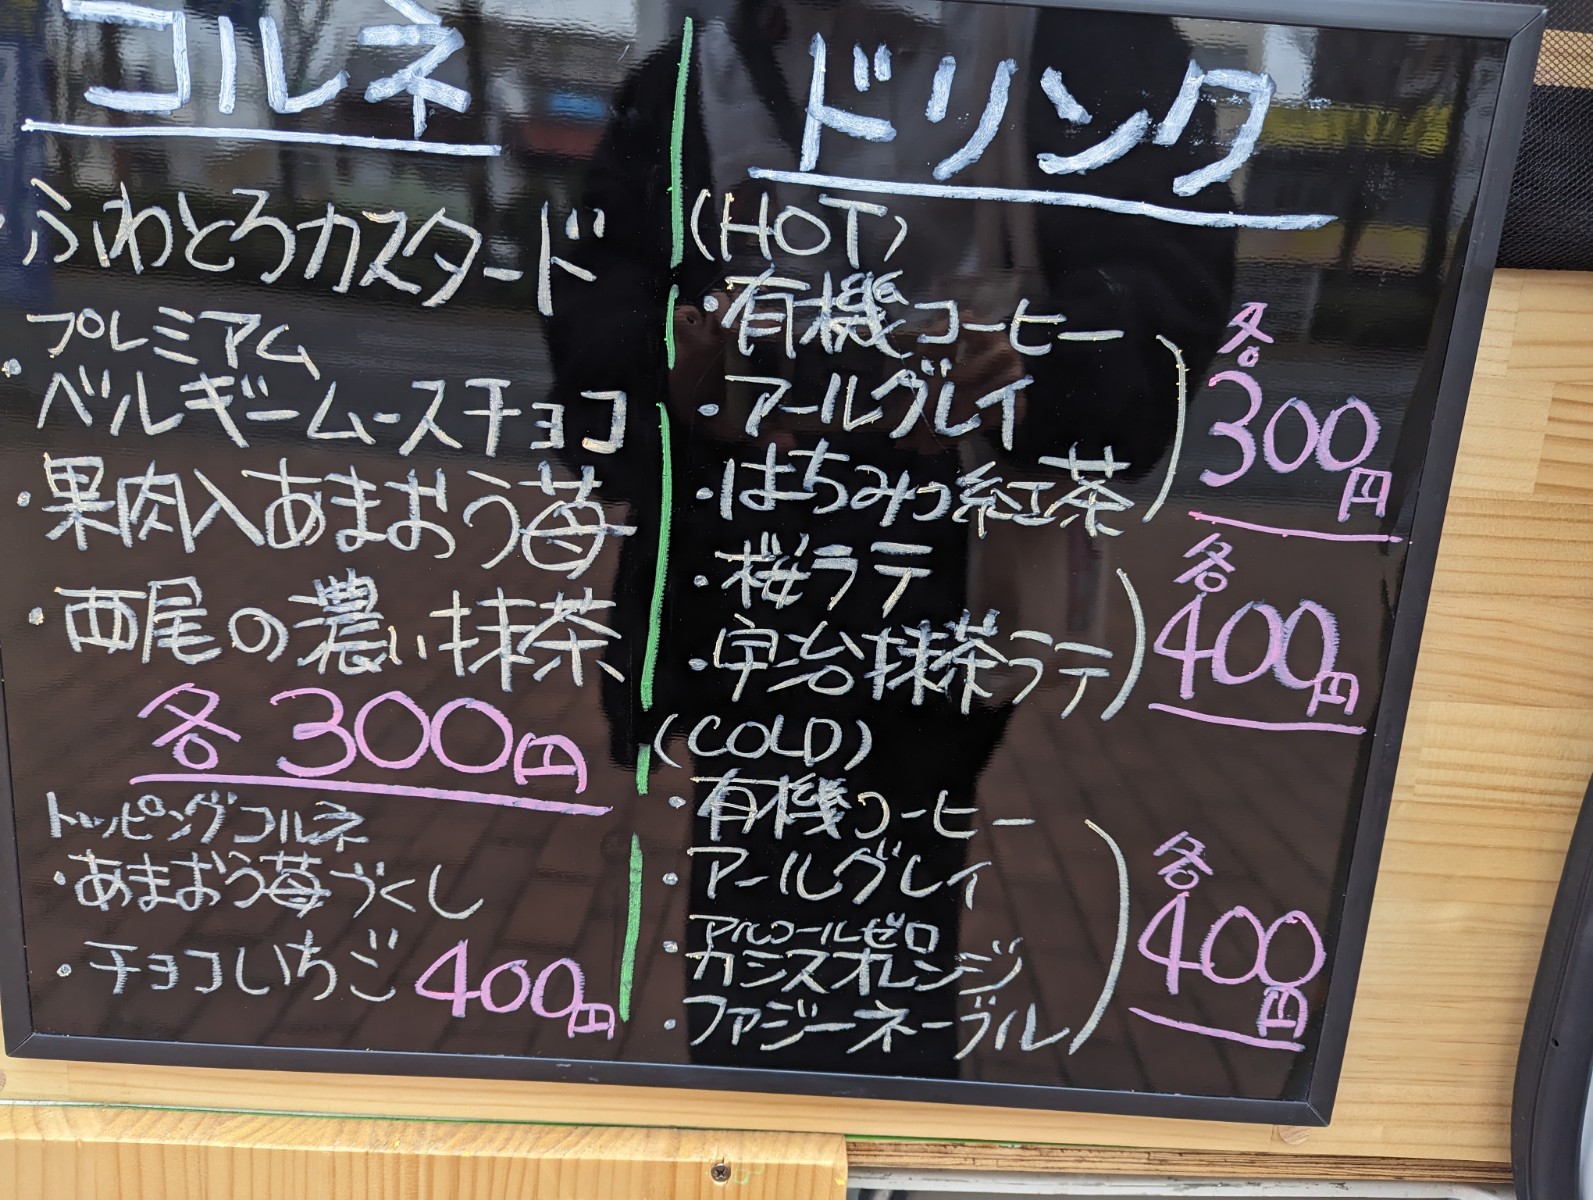 コルネ
・ふわとろカスタード
プレミアム
・ベルギームースチョコ
・果肉入あまおう苺
・西尾の濃い抹茶
各300円
トッピングコルネ
・あまおう苺づくし
・チョコいちご 400円
ドリンク
(HOT)
・有機コーヒー
・アールグレイ
・はちみつ紅茶
各300円
・桜ラテ
・宇治抹茶ラテ
各400円
(COLD)
・有機コーヒー
・アールグレイ
アルコールゼロ
・カシスオレンジ
・ファジーネーブル
各400円